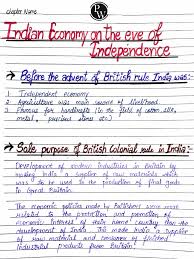 chapter Name
PW
Indian Economy on the eve of
Independence
→ Before the advent of British rule India was:-
1. Independent economy
2. Agriculture was main source of livelihood.
3. Famous for handicrafts (in the field of cotton silk,
metal, precious stones etc.)
→ Sole purpose of British Colonial rule in India
Development of modern industries in Britain by
making India a supplier of raw materials which
was to be used to the production of final goods
in Great Britain.
The economic policies made by Britishers were more
related to the protection and promotion of
economic interest of their home country than the
development of India. This made India a supplier
of raw material and consumer of finished
industrial products from Britain.